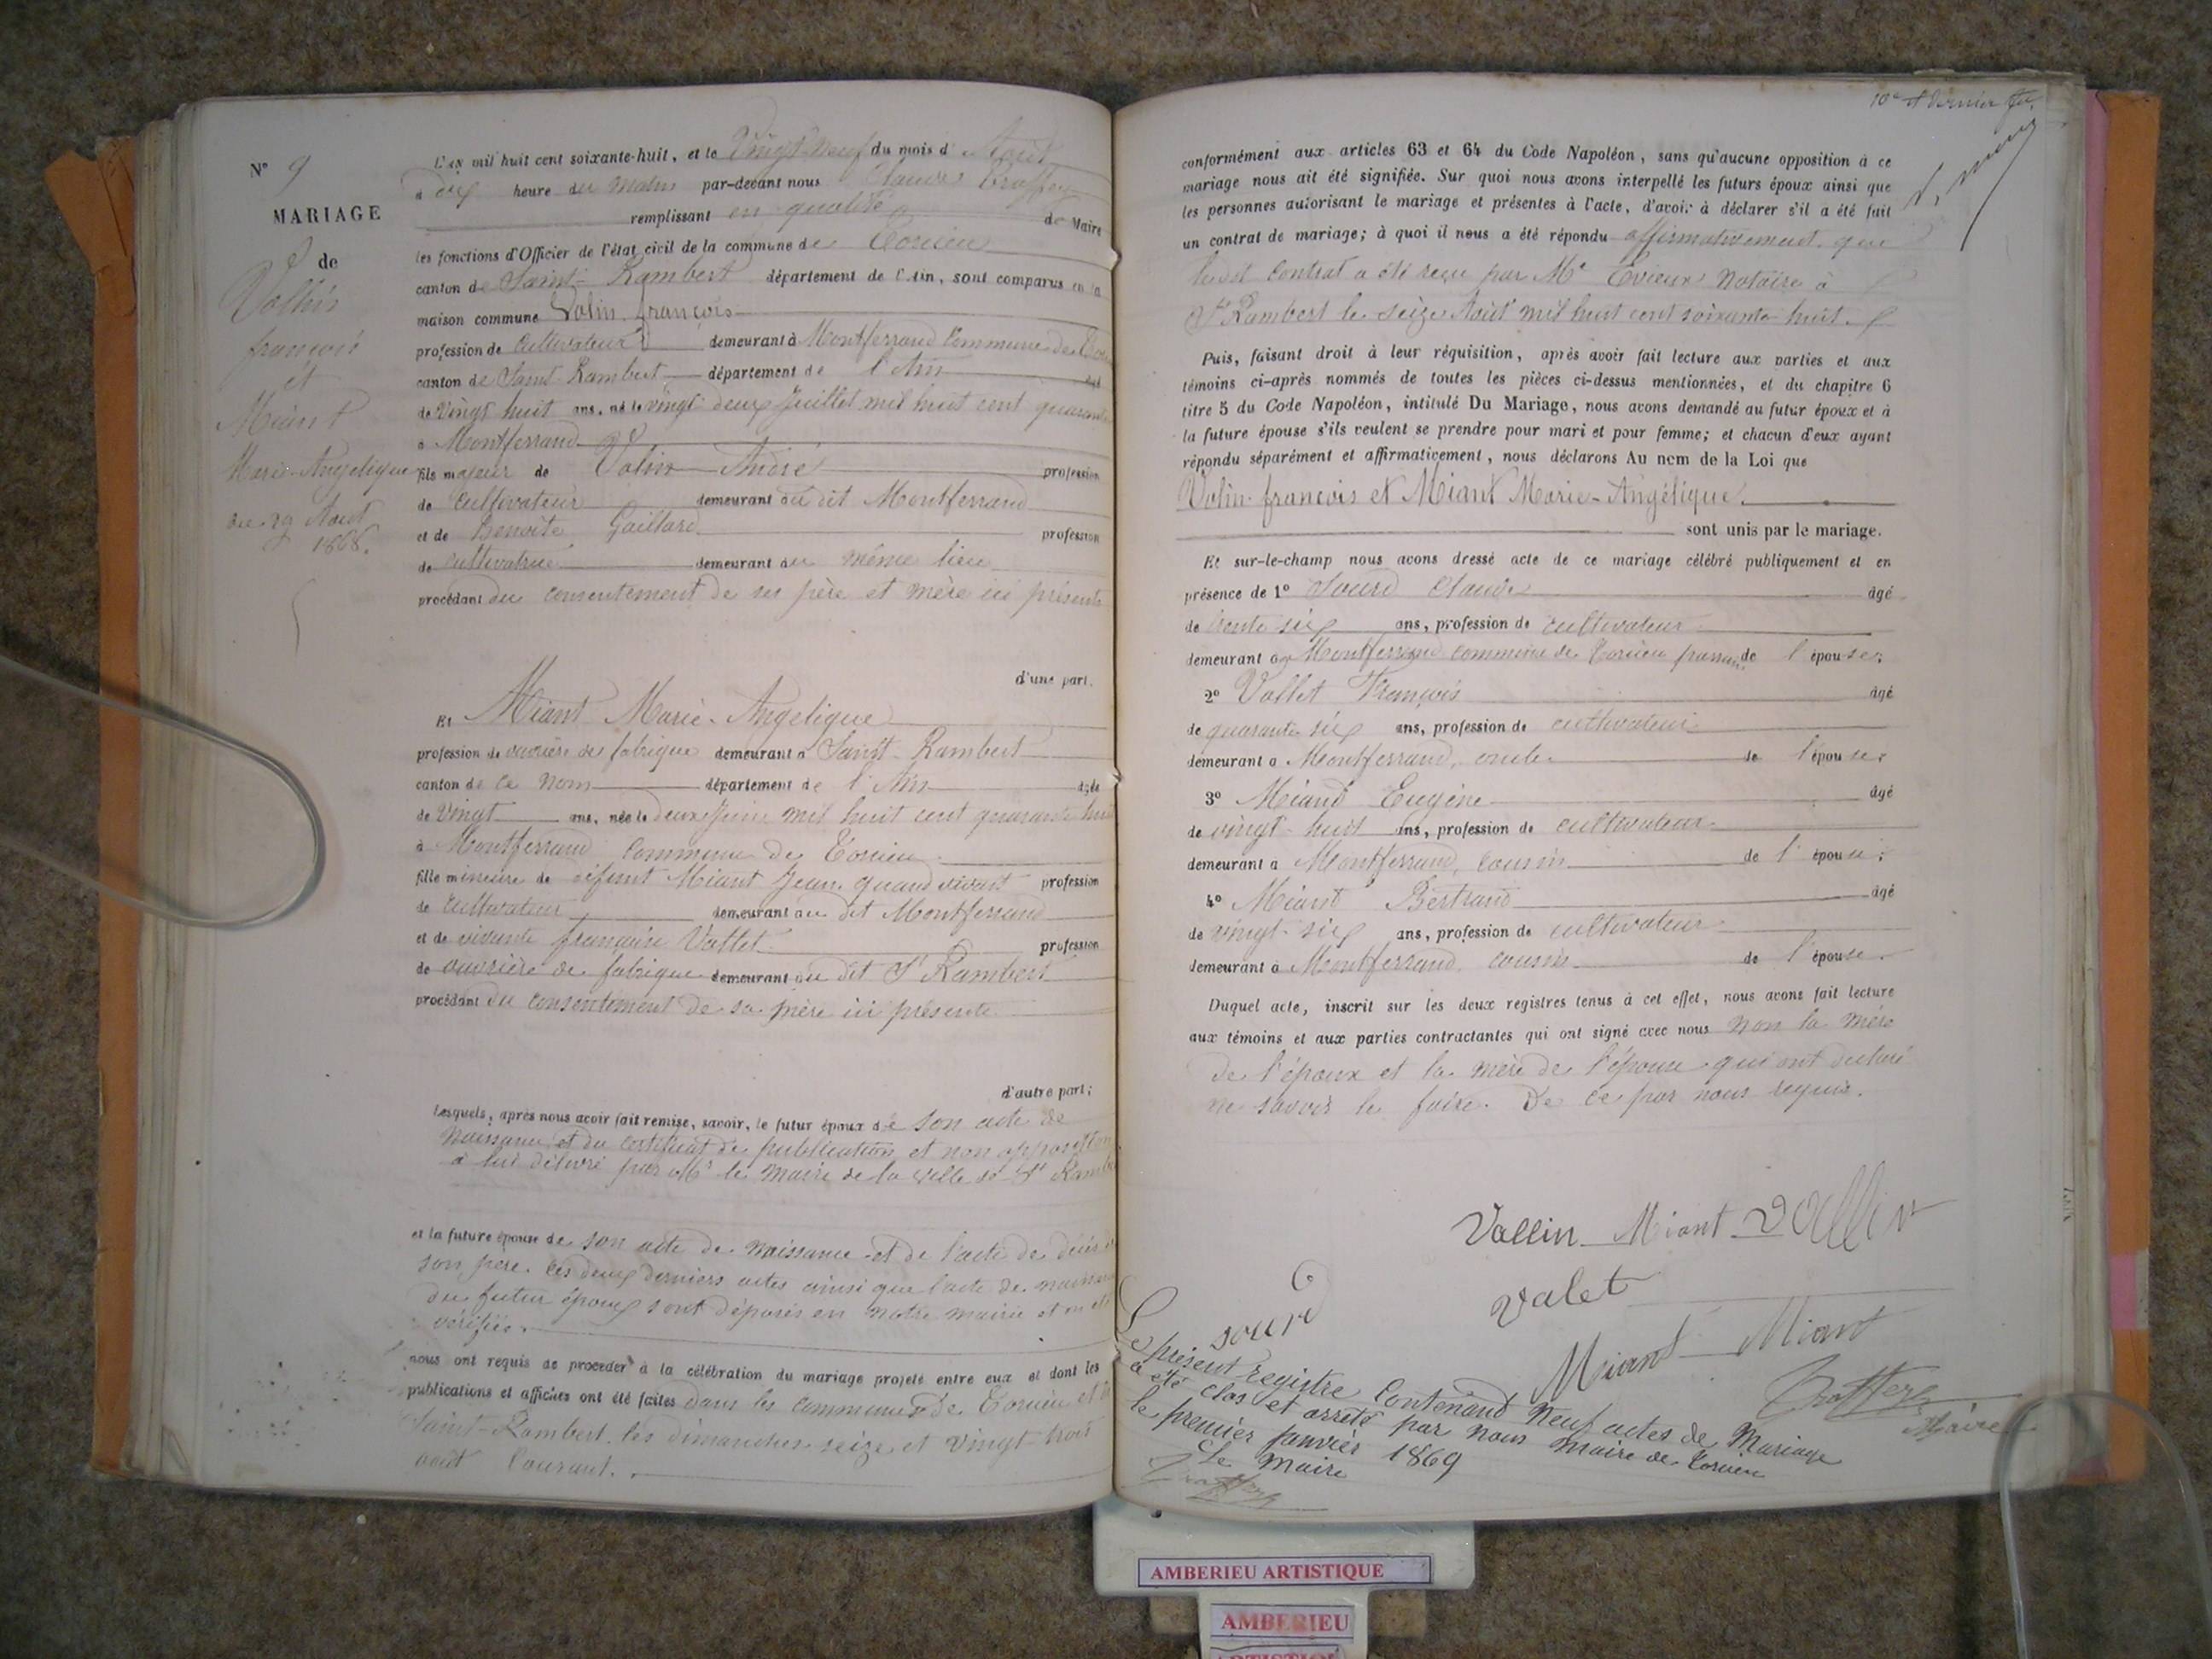 N° 9
MARIAGE
de
Vallin
françois
et
Miant
Marie-Angélique
du 29 Août
1868.
L'an mil huit cent soixante-huit, et le Vingt-neuf du mois d' Août
à dix heure du matin par-devant nous Claude
remplissant en qualité de Maire
les fonctions d'Officier de l'état civil de la commune de Torcieu
canton de Saint-Rambert département de l'Ain, sont comparus en la
maison commune Valin françois
profession de cultivateur demeurant à Montferrand Commune de
canton de Saint-Rambert département de l'Ain âgé
de Vingt huit ans, né le vingt deux Juillet mil huit cent quarante
à Montferrand
fils majeur de Valin André profession
de cultivateur demeurant au dit Montferrand
et de Benoîte Gaillard profession
de cultivatrice demeurant au même lieu
procédant du consentement de ses père et mère ici présents
d'une part.
Et Miant Marie-Angélique
profession de ouvrière de fabrique demeurant à Saint-Rambert
canton de ce nom département de l'Ain âgée
de Vingt ans, née le deux Juin mil huit cent quarante huit
à Montferrand commune de Torcieu
fille mineure de défunt Miant Jean quand vivait profession
de cultivateur demeurant au dit Montferrand
et de vivante françoise Vallet profession
de ouvrière de fabrique demeurant au dit St Rambert
procédant du consentement de sa mère ici présente
d'autre part;
Lesquels, après nous avoir fait remise, savoir, le futur époux de son acte de
naissance et du certificat de publication et non opposition
à lui délivré par Mr le Maire de la ville de St Rambert
et la future épouse de son acte de naissance et de l'acte de décès de
son père. Ces deux derniers actes ainsi que l'acte de naissance
du futur époux sont déposés en notre mairie et ont été
vérifiés.
nous ont requis de procéder à la célébration du mariage projeté entre eux et dont les
publications et affiches ont été faites dans les communes de Torcieu et de
Saint-Rambert les dimanches seize et vingt-trois
août courant.
10e et dernier fet.
conformément aux articles 63 et 64 du Code Napoléon, sans qu'aucune opposition à ce
mariage nous ait été signifiée. Sur quoi nous avons interpellé les futurs époux ainsi que
les personnes autorisant le mariage et présentes à l'acte, d'avoir à déclarer s'il a été fait
un contrat de mariage; à quoi il nous a été répondu affirmativement que
ledit Contrat a été reçu par Me Evieux Notaire à
St Rambert le seize Août mil huit cent soixante huit.
Puis, faisant droit à leur réquisition, après avoir fait lecture aux parties et aux
témoins ci-après nommés de toutes les pièces ci-dessus mentionnées, et du chapitre 6
titre 5 du Code Napoléon, intitulé Du Mariage, nous avons demandé au futur époux et à
la future épouse s'ils veulent se prendre pour mari et pour femme; et chacun d'eux ayant
répondu séparément et affirmativement, nous déclarons Au nom de la Loi que
Valin francois et Miant Marie-Angélique.
sont unis par le mariage.
Et sur-le-champ nous avons dressé acte de ce mariage célébré publiquement et en
présence de 1° Sourd Claude âgé
de trente six ans, profession de cultivateur
demeurant à Montferrand commune de Torcieu parrain de l'épouse;
2° Vallet François âgé
de quarante six ans, profession de cultivateur
demeurant à Montferrand, oncle de l'épouse;
3° Miand Eugène âgé
de vingt-huit ans, profession de cultivateur
demeurant à Montferrand, cousin de l'épouse;
4° Miand Bertrand âgé
de vingt-six ans, profession de cultivateur
demeurant à Montferrand cousin de l'épouse.
Duquel acte, inscrit sur les deux registres tenus à cet effet, nous avons fait lecture
aux témoins et aux parties contractantes qui ont signé avec nous non la mère
de l'époux et la mère de l'épouse qui ont déclaré
ne savoir le faire. De ce par nous requis.
Vallin Miant Vallin
Valet
sourd
Miant Miant
Maire
Le présent registre Contenand Neuf actes de Mariage
a été clos et arrêté par nous Maire de Torcieu
le premier janvier 1869
Le Maire
AMBERIEU ARTISTIQUE
AMBERIEU
ARTISTIQUE